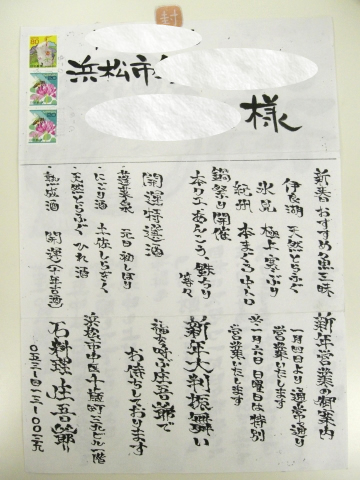 封
80
浜松市
様
新春おすすめ魚三昧
伊良湖 天然とらふぐ
氷見 極上寒ぶり
紀州 本まぐろ中トロ
鍋祭り開催
本クエ、あんこう、鱈ちり
等々
開運特選酒
・蓬莱泉 元旦初しぼり
・にごり酒 土佐しらぎく
・天然とらふぐ ひれ酒
・熟成酒 開運
新年営業の御案内
一月四日より通常通り
営業いたします
※一月六日 日曜日は特別
営業いたします
新年大判振舞い
福を呼ぶ庄吾爺で
お待ちしております
浜松市中区千歳町三九ビル一階
石料理 庄吾爺